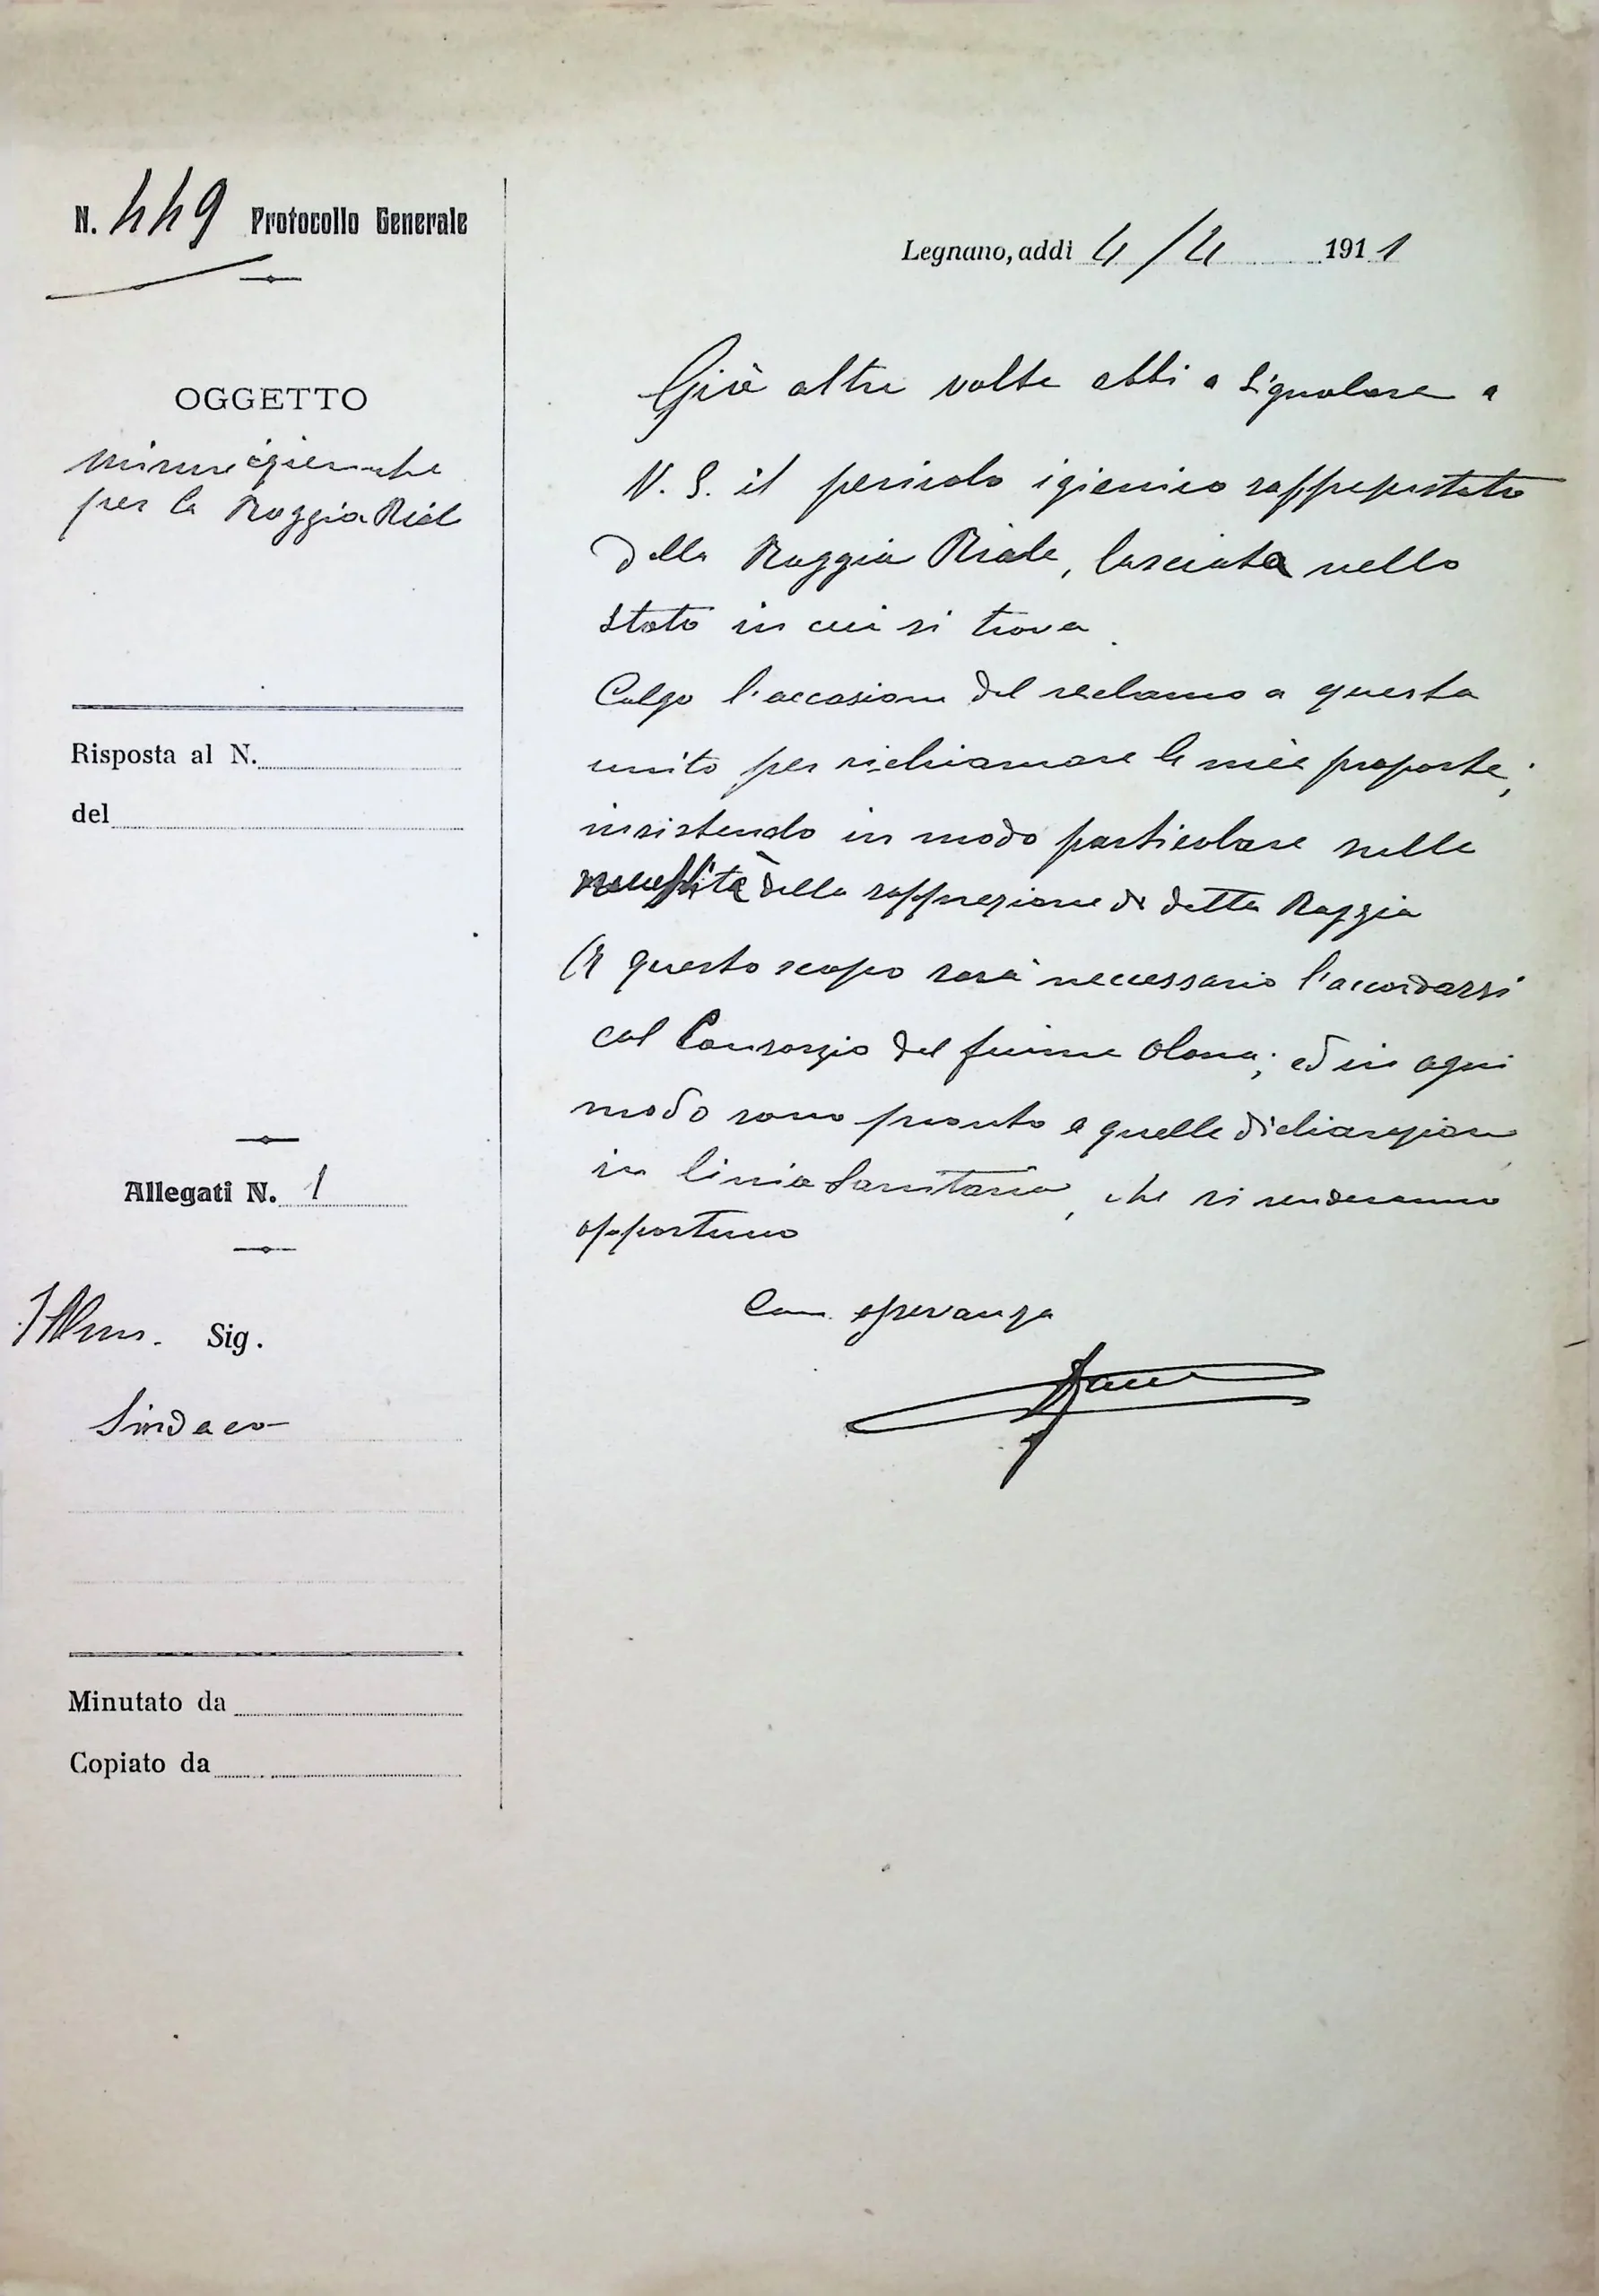 N. 449 Protocollo Generale
OGGETTO
misure igieniche
per la Roggia Rial
Risposta al N.
del
Allegati N. 1
Illmo. Sig.
Sindaco
Minutato da
Copiato da
Legnano, addì 4/4 1911
Già altre volte ebbi a Signalare a
V. S. il pericolo igienico
della Roggia Riale, lasciata nello
stato in cui si trova
Colgo l'occasione del reclamo a questa
unito per richiamare le mie proposte;
insistendo in modo particolare sulla
necessità della soppressione di detta Roggia
A questo scopo sarà neccessario l'accordarsi
col Consorzio del fiume Olona; ed in ogni
modo sono pronto a quelle dichiarazioni
in linia Sanitaria, che si renderanno
opportune
Con osservanza